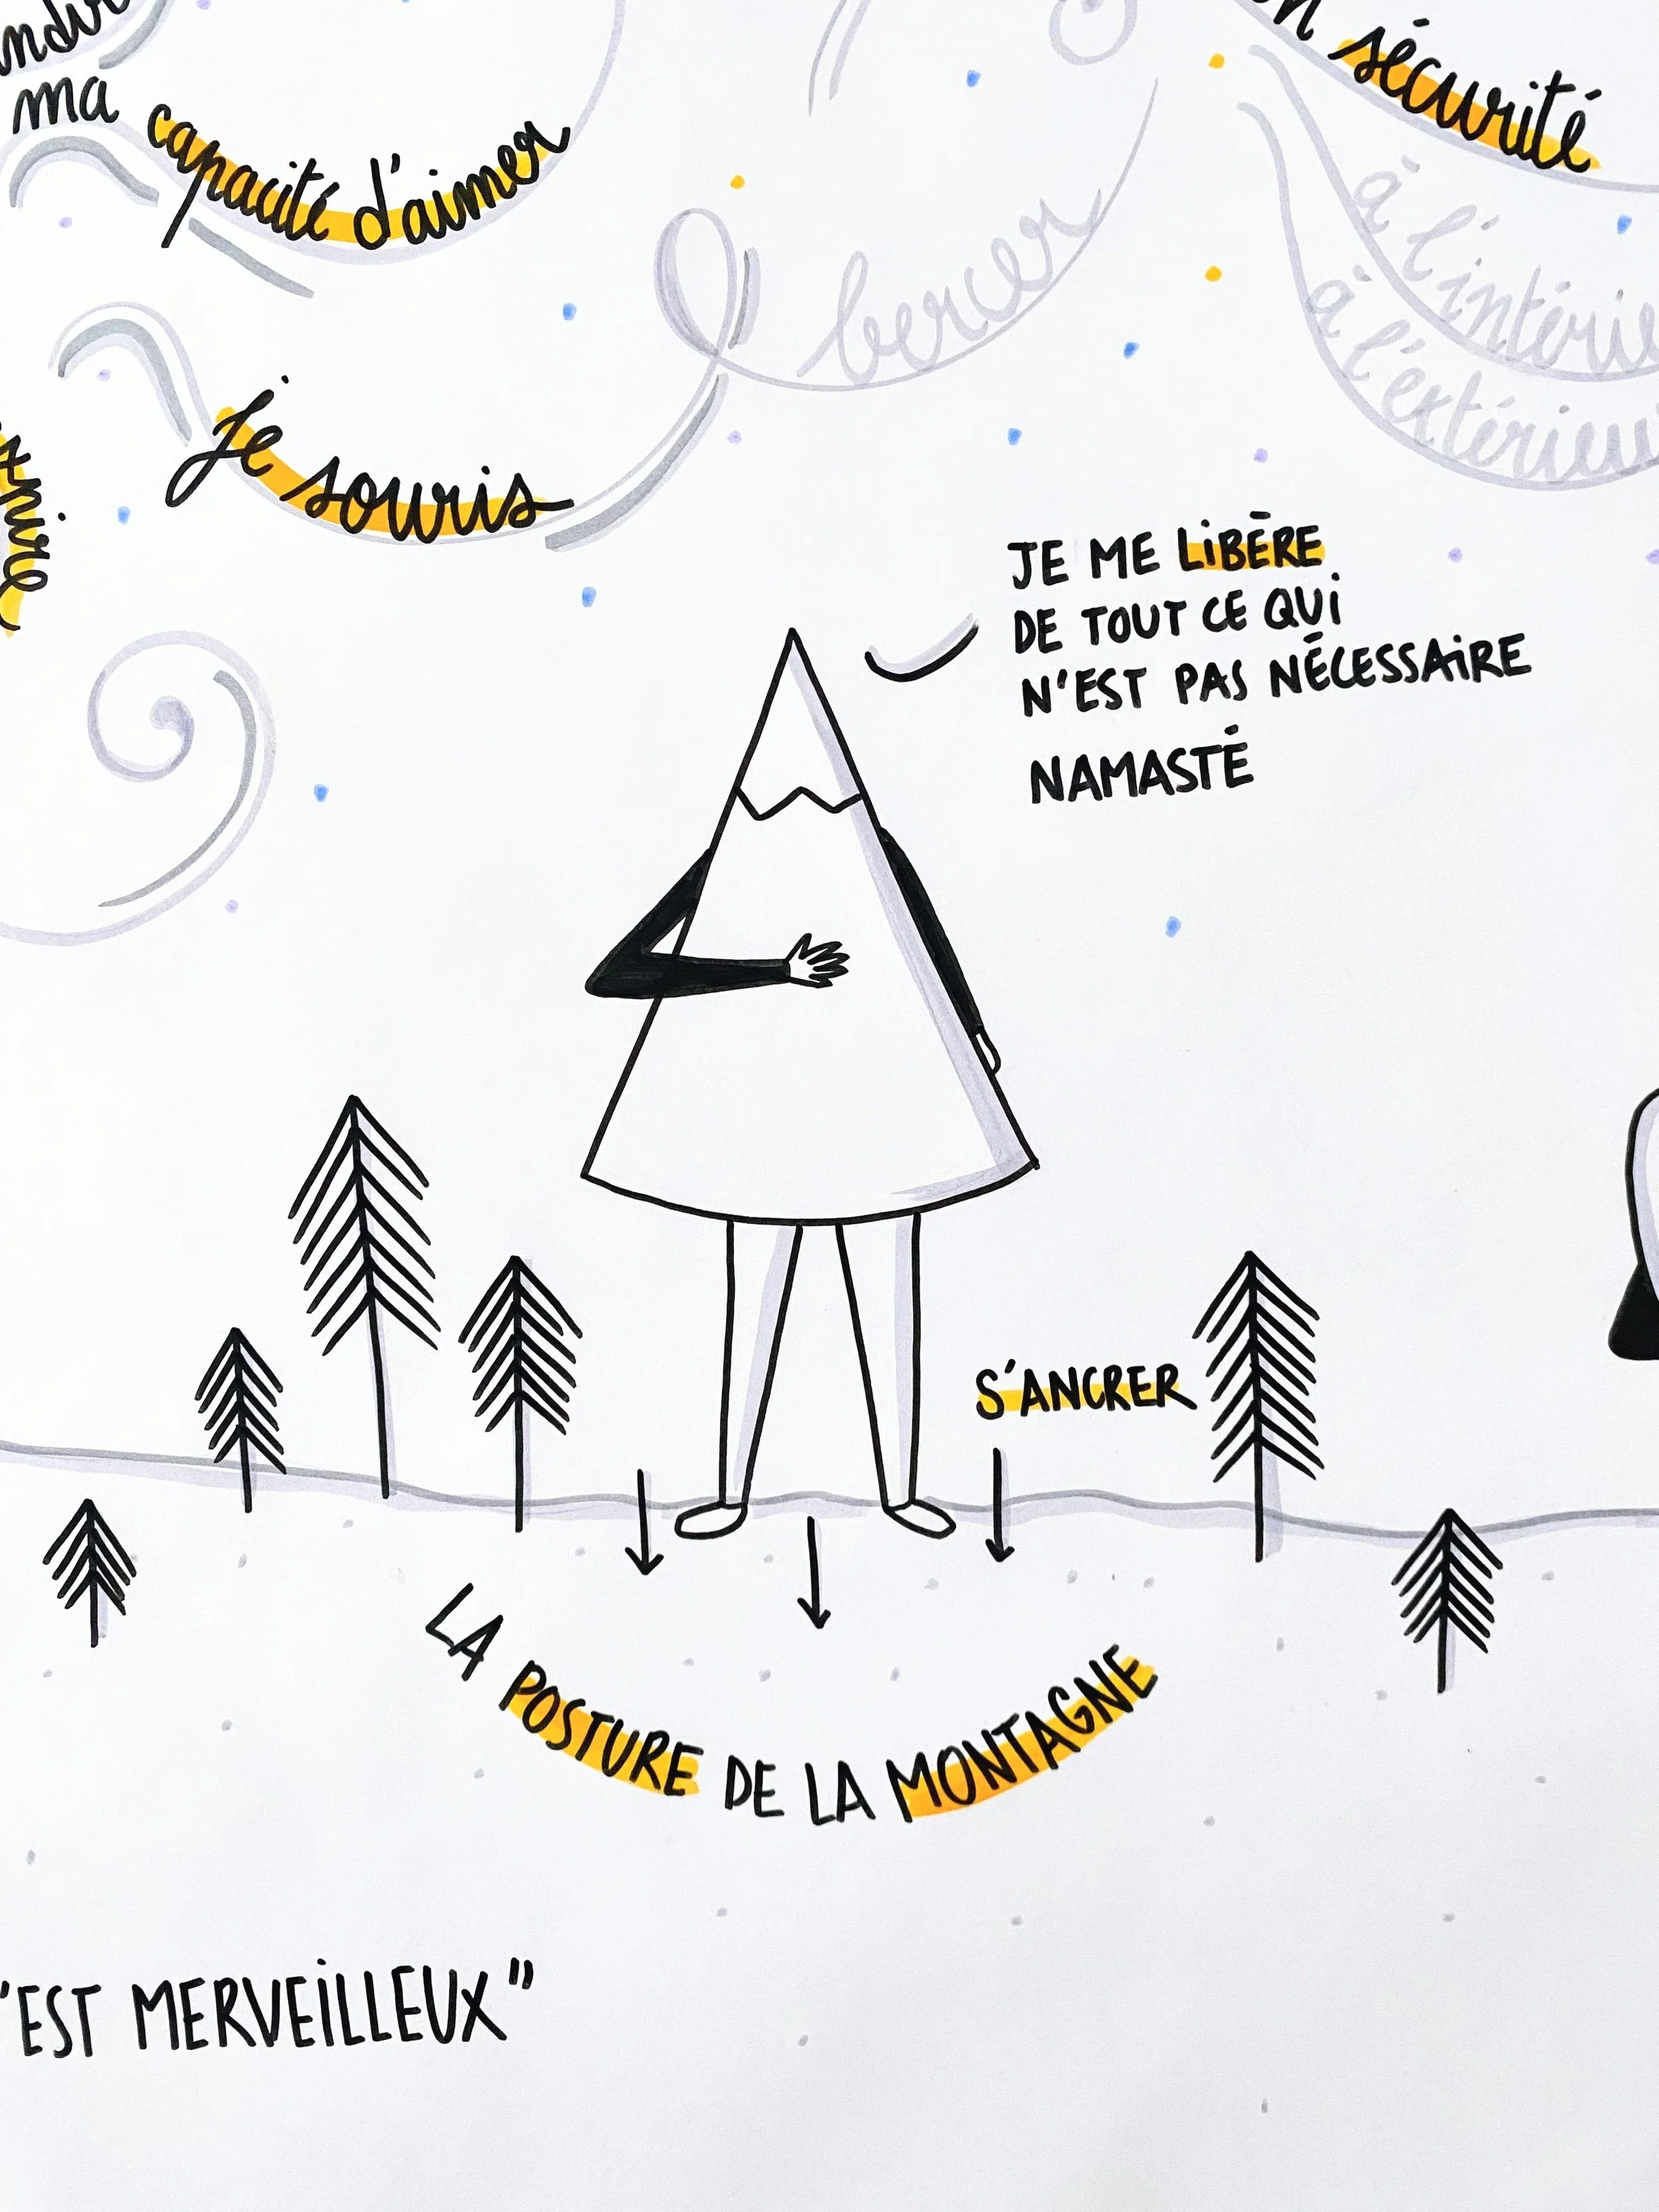 ma
capacité d'aimer
sécurité
bercer
à l'intérie
à l'extérieu
je souris
JE ME LIBÈRE
DE TOUT CE QUI
N'EST PAS NÉCESSAIRE
NAMASTÉ
S'ANCRER
LA POSTURE DE LA MONTAGNE
'EST MERVEILLEUX"